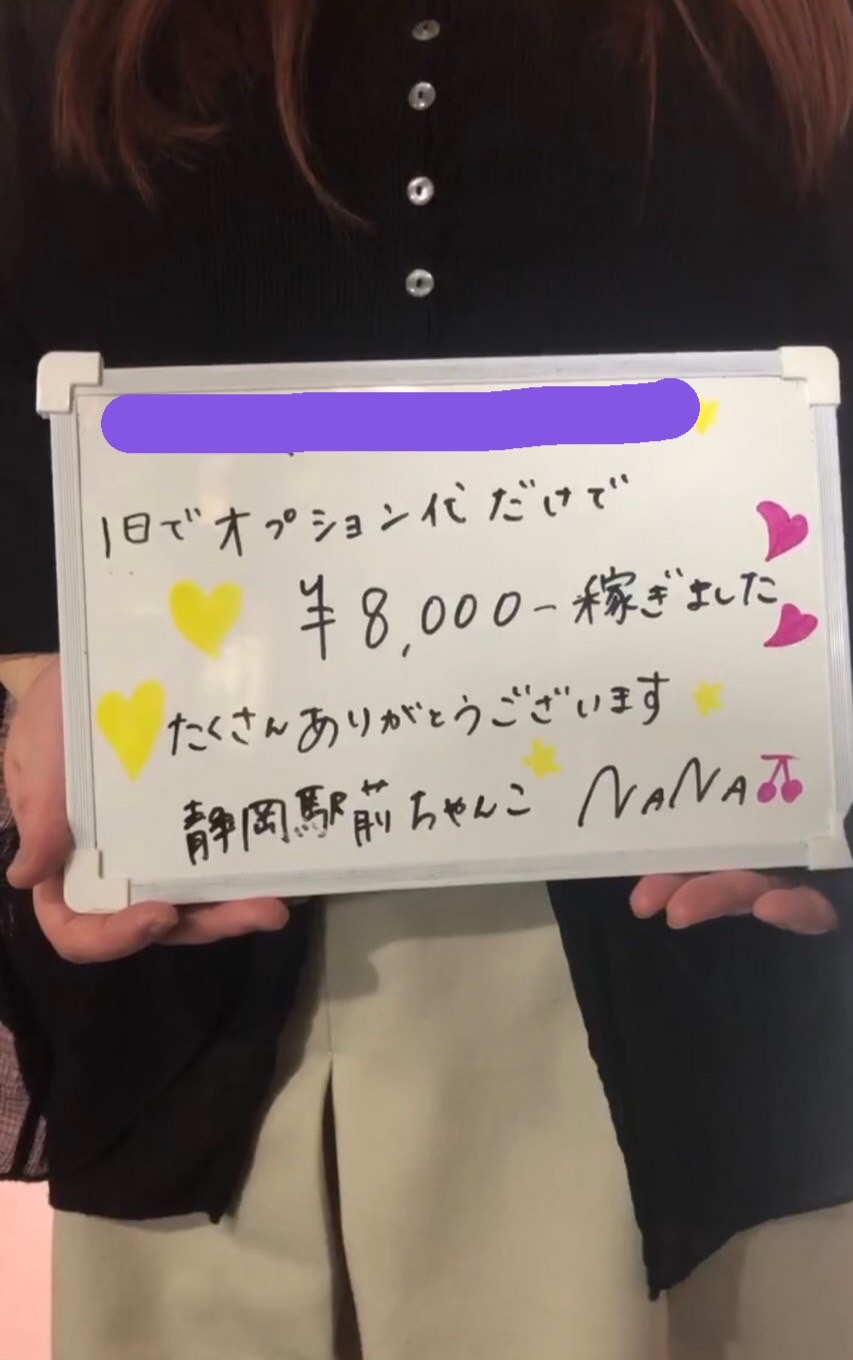 1日でオプション代だけで
¥8,000-稼ぎました
たくさんありがとうございます
静岡駅前ちゃんこ NANA